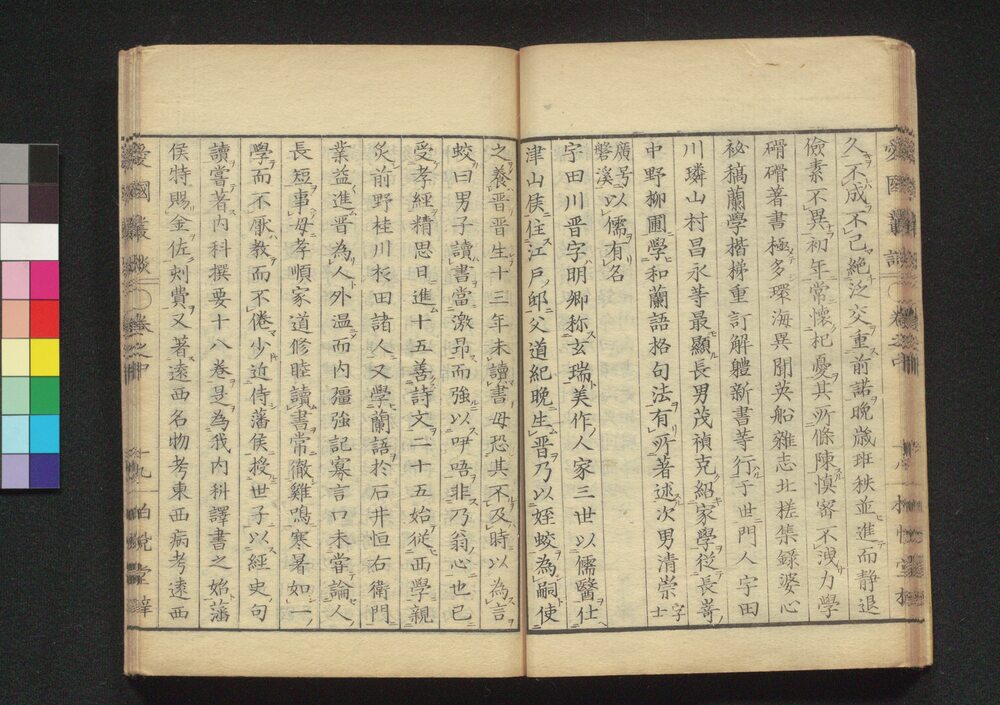 久不成不已絶泛交重前諾晩歳班秩並進而靜退
儉素不異初年常懷杞憂其所條陳愼密不洩力學
磆磆著書極多環海異聞英船雜志北槎集録婆心
祕稿蘭學揩梯重訂解體新書等行于世門人宇田
川璘山村昌永等最顯長男茂禎克紹家學從長嵜
中野柳圃學和蘭語格句法有所著述次男清崇字士
廣号磐溪以儒有名
宇田川晋字明卿称玄瑞美作人家三世以儒醫仕
津山侯住江戸邸父道紀晩生晋乃以姪蛟為嗣使
之養晋晋生十三年未讀書母恐其不及時以為言
蛟曰男子讀書當激昻而強以咿唔非乃翁心也已
受孝經精思日進十五善詩文二十五始從西學親
炙前野桂川杉田諸人又學蘭語於石井恒右衛門
業益進晋為人外温而内彊強記寡言口未嘗論人
長短事母孝順家道修睦讀書常徹雞鳴寒暑如一
學而不厭教而不倦少近侍藩侯授世子以經史句
讀嘗著内科撰要十八巻是為我内科譯書之始藩
侯特賜金佐刻費又著遠西名物考東西病考遠西
愛國叢談
巻之中
十九